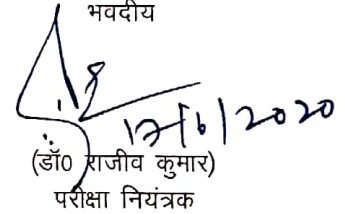 भवदीय
17/6/2020
(डॉ0 राजीव कुमार)
परीक्षा नियंत्रक